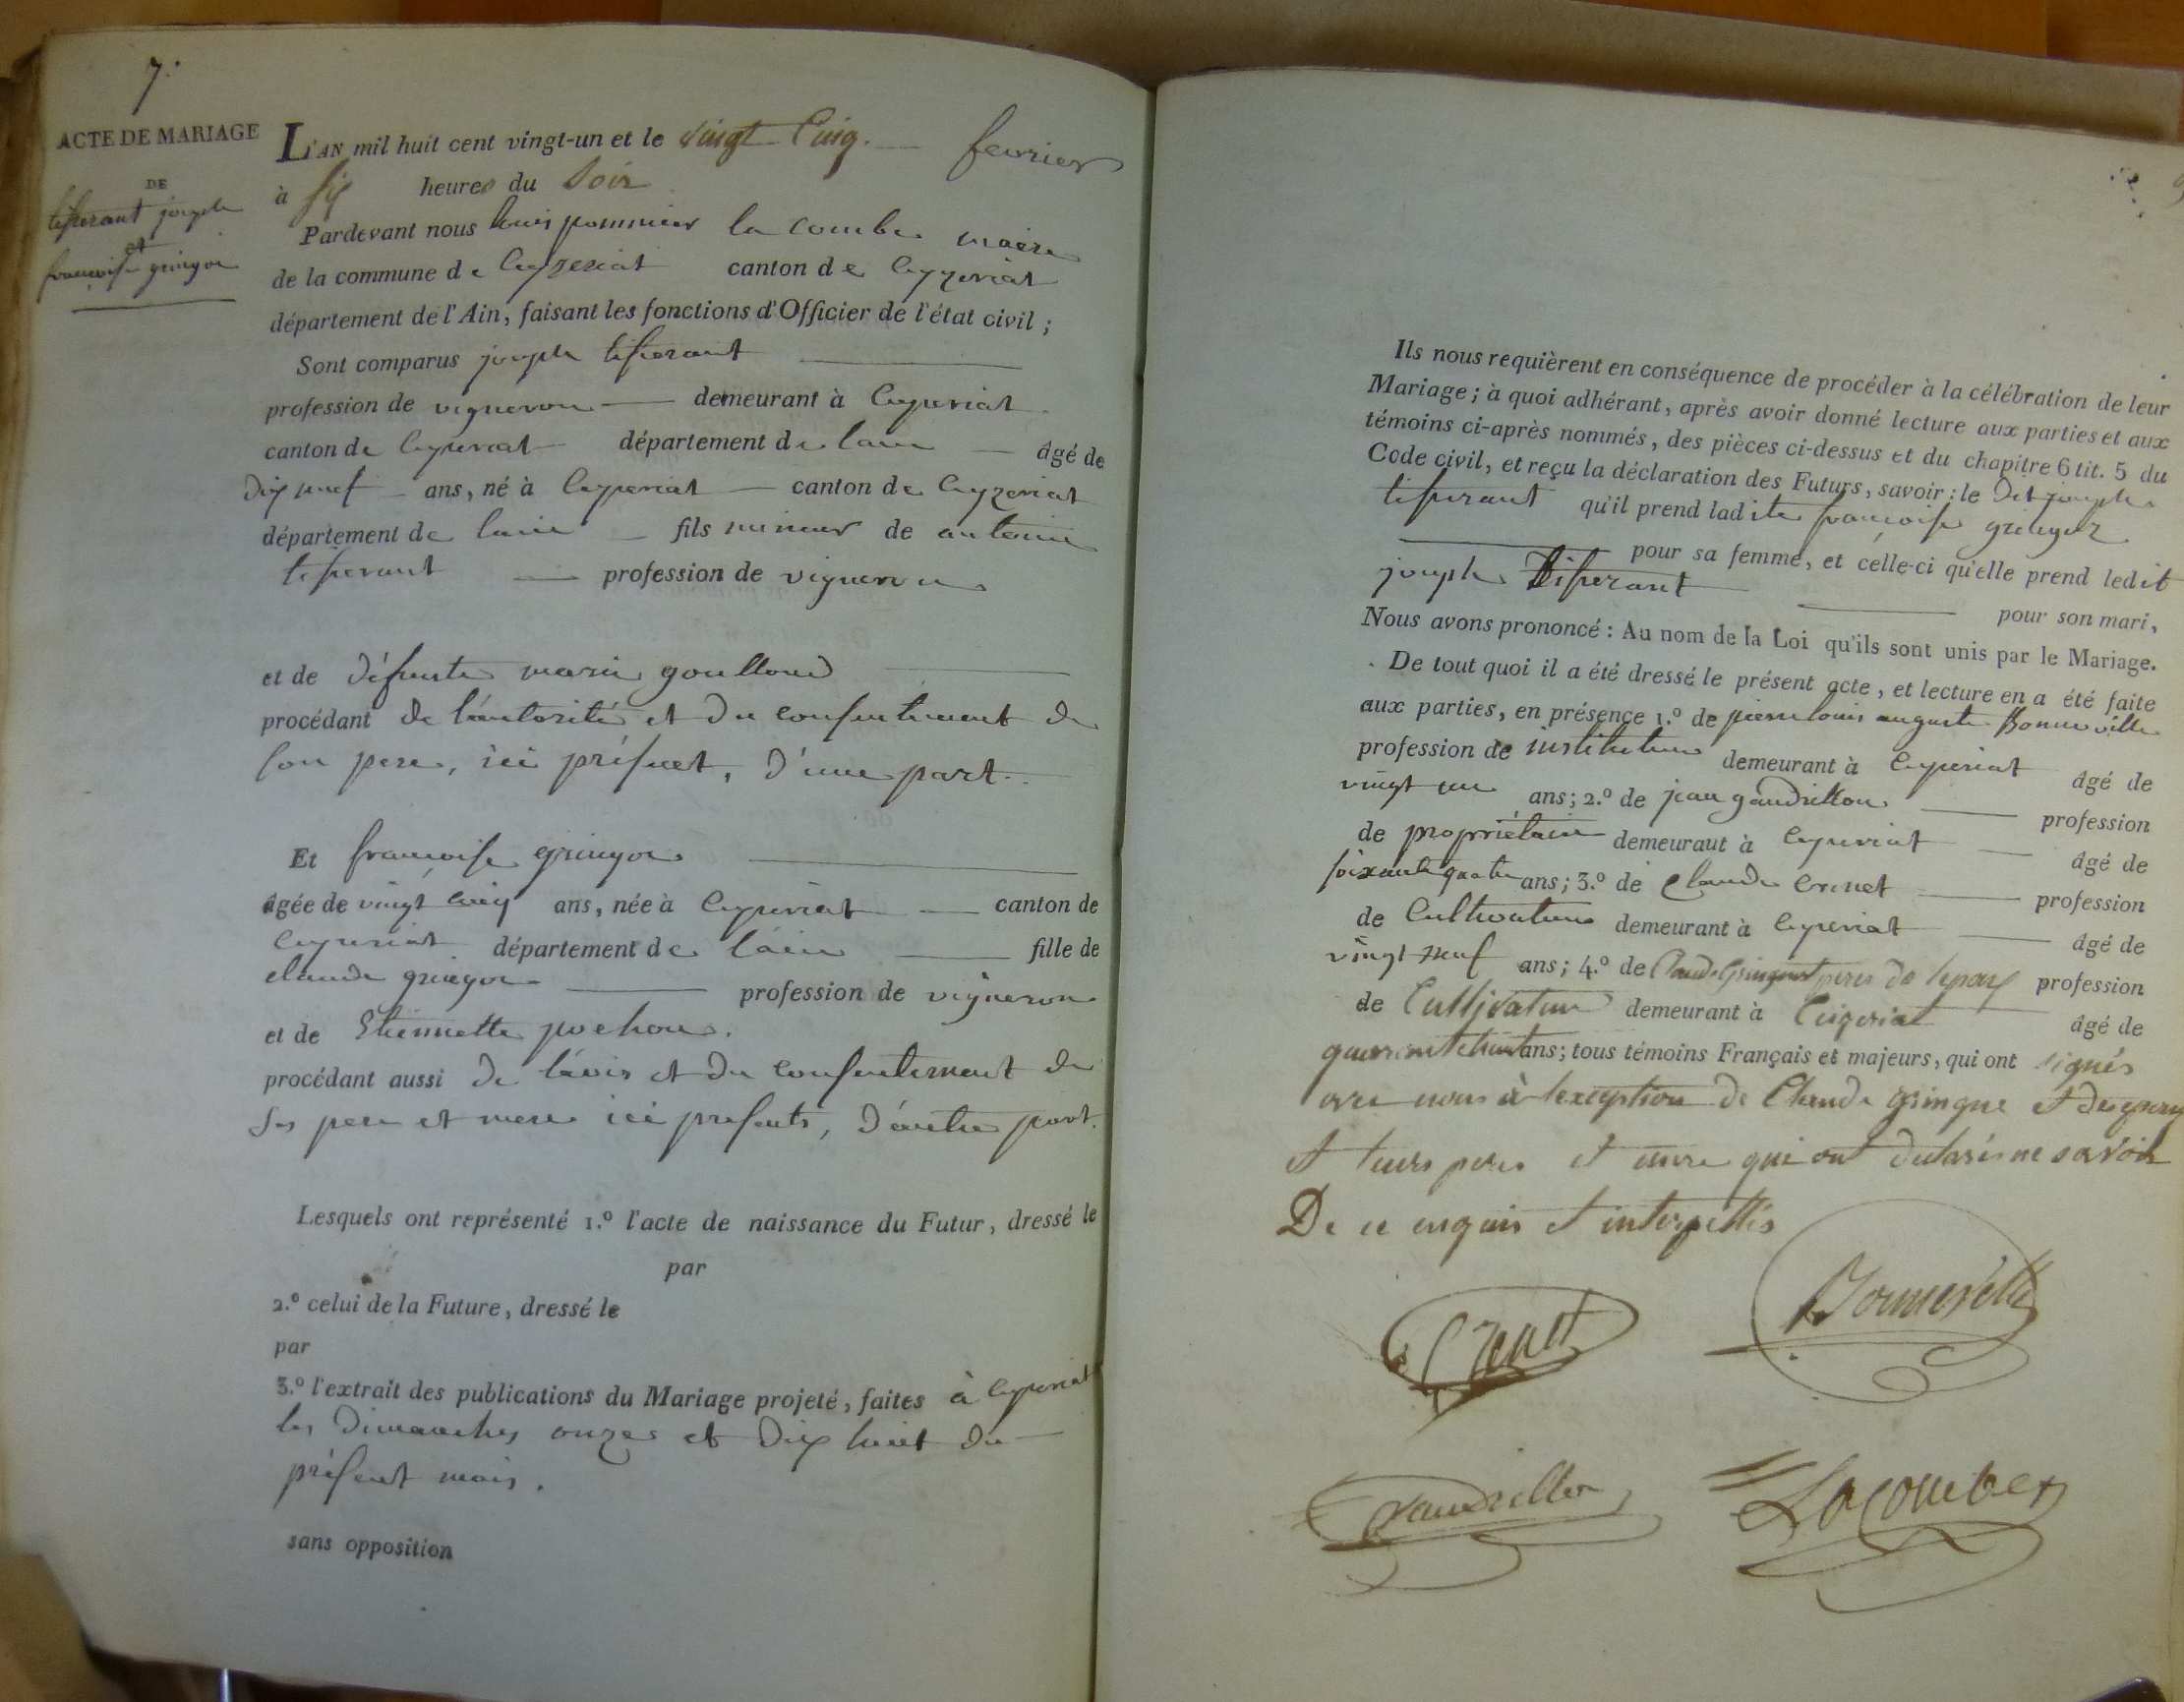 7.
ACTE DE MARIAGE
DE
tisserant joseph
et
françoise gringoz
L'AN mil huit cent vingt-un et le vingt Cinq. fevrier
à six heures du Soir
Pardevant nous louis pommier la combe maire
de la commune de Ceyzeriat canton de Ceyzeriat
département de l'Ain, faisant les fonctions d'Officier de l'état civil ;
Sont comparus joseph tisserant
profession de vigneron demeurant à Ceyzeriat
canton de Ceyzeriat département de lain âgé de
Dix neuf ans, né à Ceyzeriat canton de Ceyzeriat
département de lain fils mineur de antoine
tisserant profession de vigneron
et de défunte marie goulloud
procédant de l'autorité et du consentement de
son pere, ici présent, d'une part.
Et françoise gringoz
âgée de vingt cinq ans, née à Ceyzeriat canton de
Ceyzeriat département de l'ain fille de
claude gringoz profession de vigneron
et de Etiennette pochon.
procédant aussi de l'avis et du consentement de
ses pere et mere ici presents, d'autre part.
Lesquels ont représenté 1.º l'acte de naissance du Futur, dressé le
par
2.º celui de la Future, dressé le
par
3.º l'extrait des publications du Mariage projeté, faites à Ceyzeriat
les Dimanches onze et dix huit du
présent mois.
sans opposition
Ils nous requièrent en conséquence de procéder à la célébration de leur
Mariage ; à quoi adhérant, après avoir donné lecture aux parties et aux
témoins ci-après nommés, des pièces ci-dessus et du chapitre 6 tit. 5 du
Code civil, et reçu la déclaration des Futurs, savoir : le Dit joseph
tisserant qu'il prend ladite françoise gringoz
pour sa femme, et celle-ci qu'elle prend ledit
joseph tisserant pour son mari,
Nous avons prononcé : Au nom de la Loi qu'ils sont unis par le Mariage.
De tout quoi il a été dressé le présent acte, et lecture en a été faite
aux parties, en présence 1.º de pierre louis auguste Bonneville
profession de instituteur demeurant à Ceyzeriat âgé de
vingt un ans ; 2.º de jean gaudrillon profession
de propriétaire demeuraut à Ceyzeriat âgé de
soixante quatre ans ; 3.º de Claude Crenet profession
de Cultivateur demeurant à Ceyzeriat âgé de
vingt neuf ans ; 4.º de Claude Gringue pere de profession
de Cultivateur demeurant à Ceizeriat âgé de
ans ; tous témoins Français et majeurs, qui ont signés
avec nous à lexception de Claude gringue et des
et leurs peres et mere qui ont declarés ne savoir
De ce enquis et interpellés
Crenet
Bonneville
Gaudrillon
Lacombe